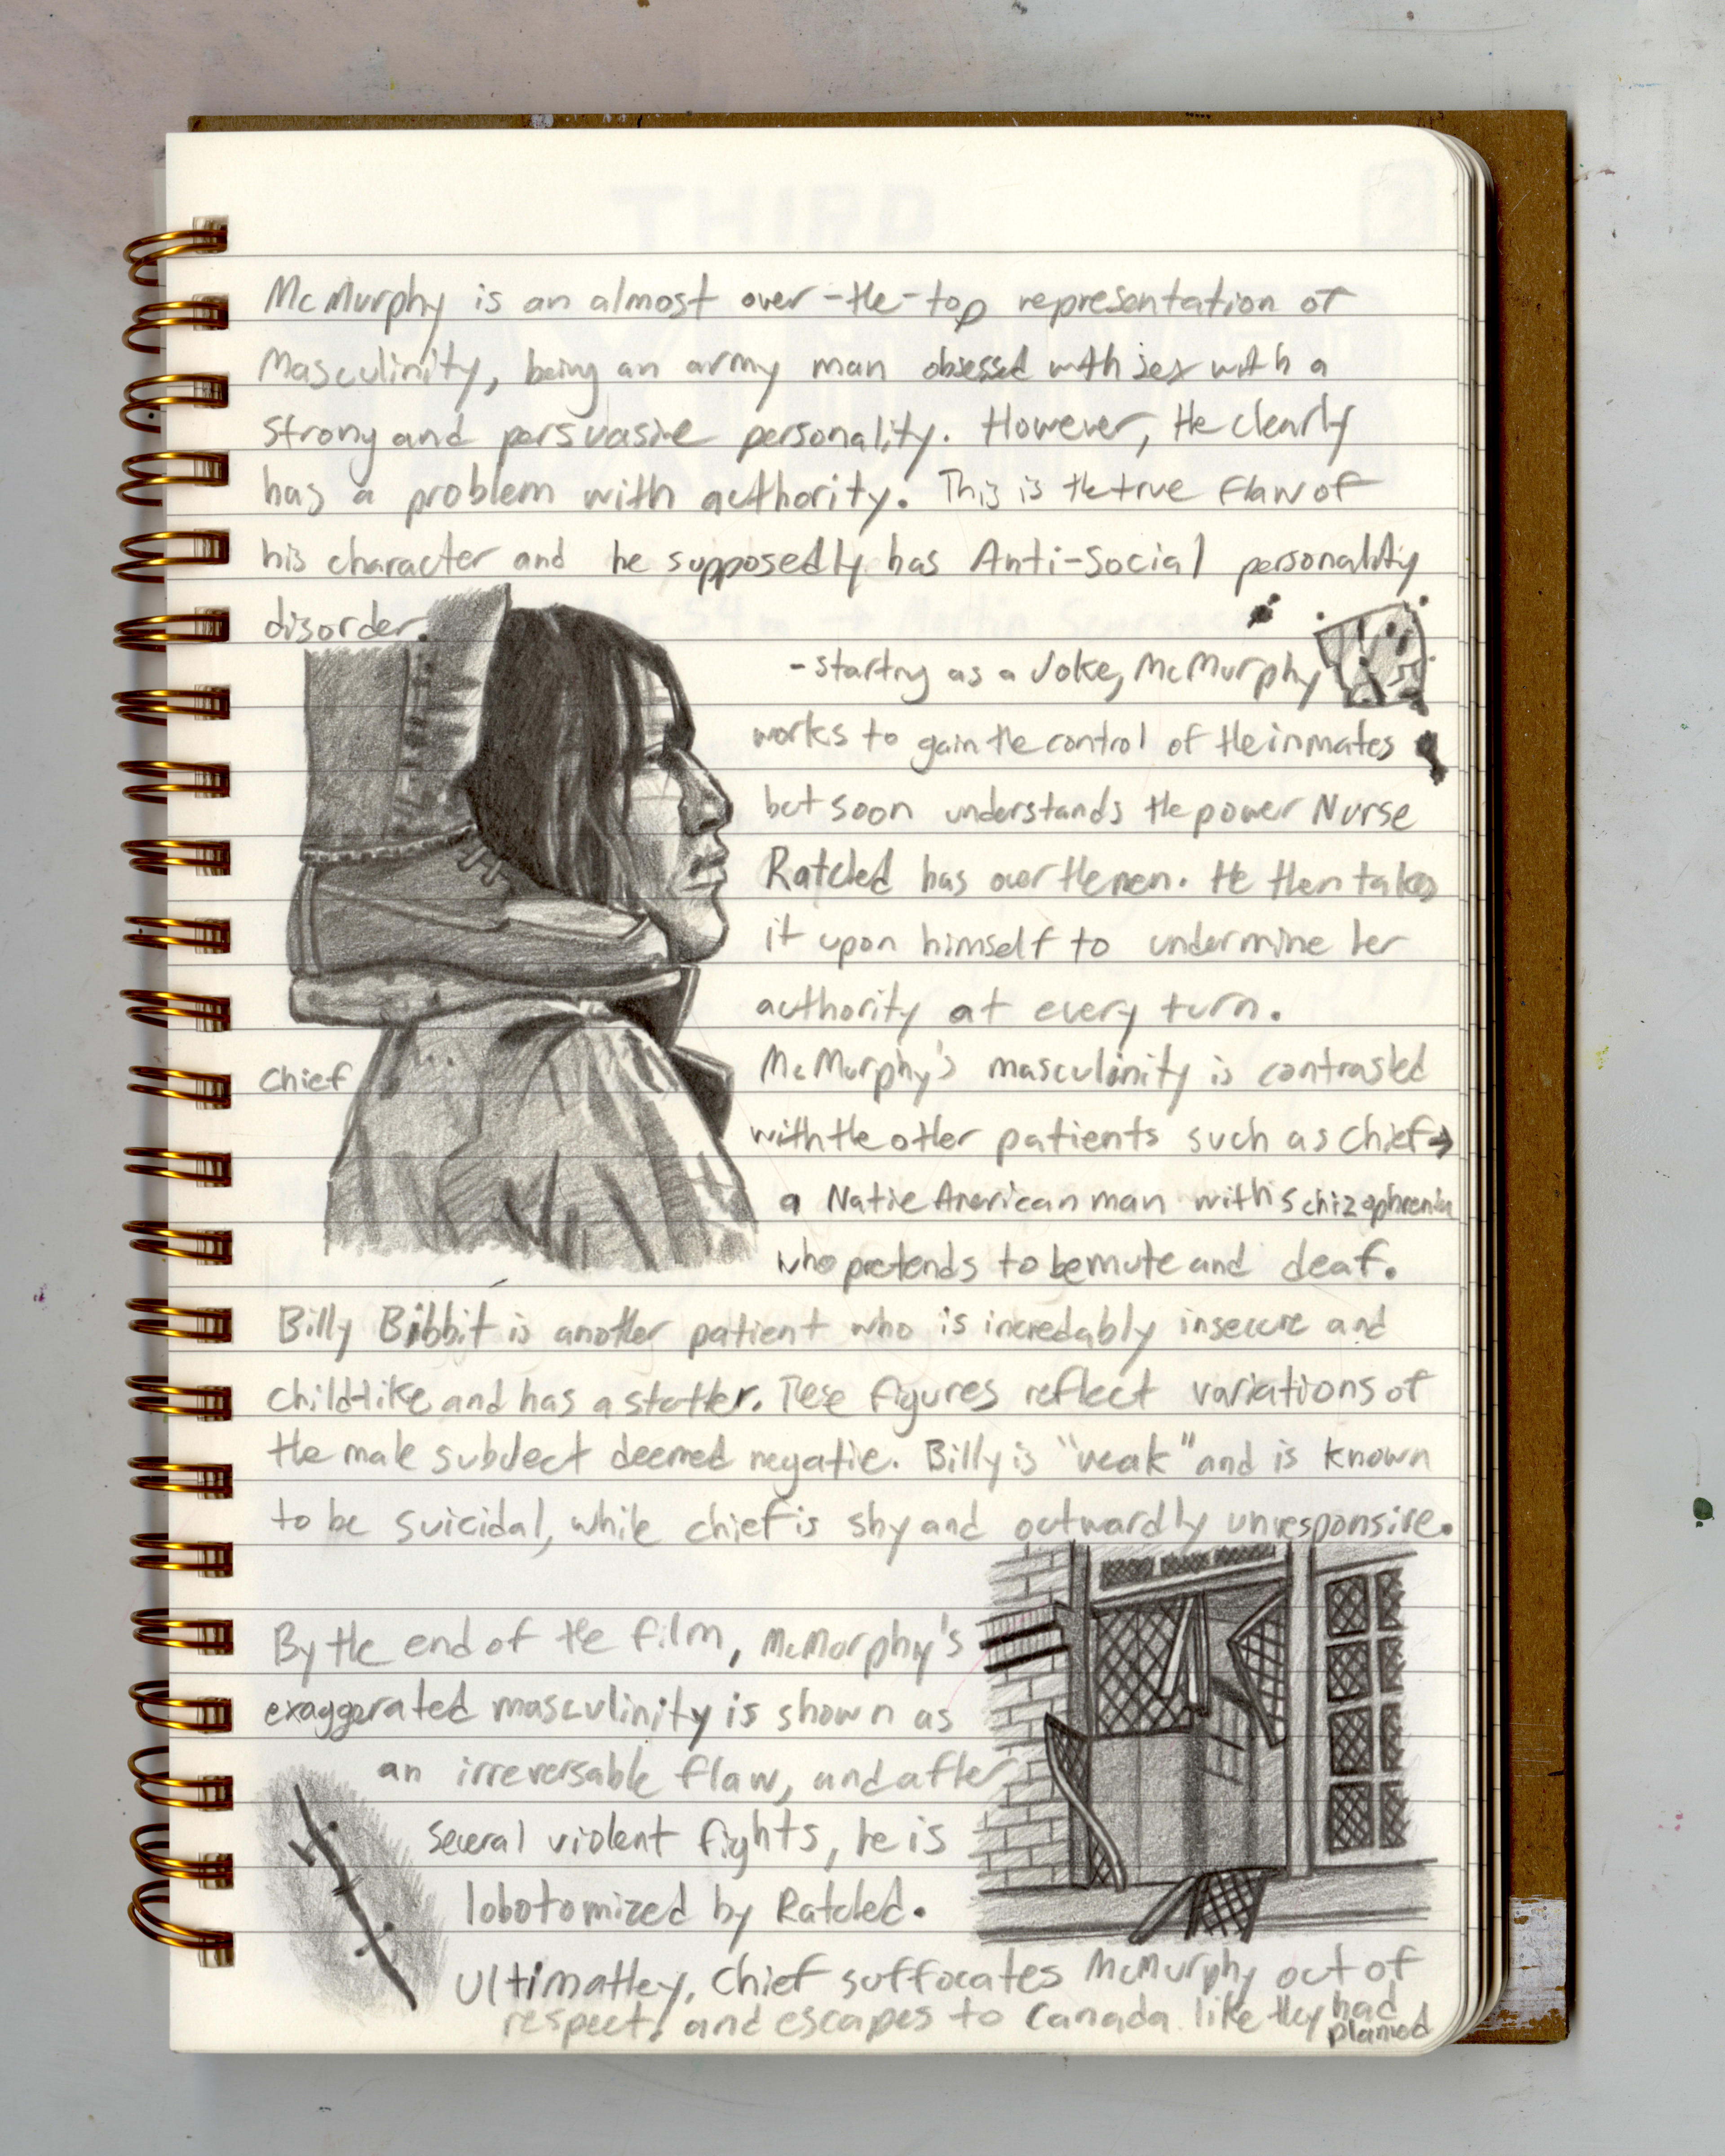 McMurphy is an almost over-the-top representation of
Masculinity, being an army man obsessed with sex with a
strong and persuasive personality. However, He clearly
has a problem with authority. This is the true flaw of
his character and he supposedly has Anti-Social personality
disorder.
- starting as a Joke, McMurphy
works to gain the control of the inmates
but soon understands the power Nurse
Ratched has over the men. He then takes
it upon himself to undermine her
authority at every turn.
McMurphy's masculinity is contrasted
with the other patients such as Chief →
a Native American man with schizophrenia
who pretends to be mute and deaf.
Chief
Billy Bibbit is another patient who is incredably insecure and
child-like and has a stutter. These figures reflect variations of
the male subject deemed negative. Billy is "weak" and is known
to be suicidal, while chief is shy and outwardly unresponsive.
By the end of the film, McMurphy's
exaggerated masculinity is shown as
an irreversable flaw, and after
several violent fights, he is
lobotomized by Ratched.
Ultimatley, Chief suffocates McMurphy out of
respect, and escapes to Canada like they had
planned